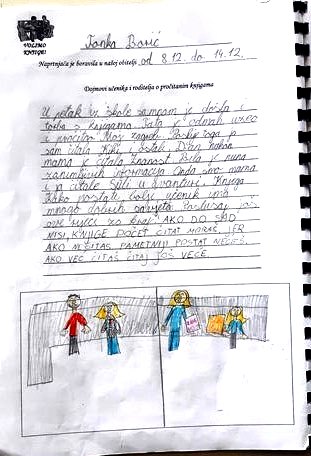 VOLIMO
KNJIGE!
Janka Barić
Naprtnjača je boravila u našoj obitelji od 8.12. do 14.12.
Dojmovi učenika i roditelja o pročitanim knjigama
U petak iz škole sa mnom je došla i
torba s knjigama. Tata je odmah uzeo
i pročitao Moj Zagreb. Poslije toga
sam čitala Kiki i ostali. Dan nakon
mama je čitala Znanost. Bila je puna
zanimljivih informacija. Onda smo mama
i ja čitale Stili u avanturi. Knjiga
Kako postati bolji učenik ima
mnogo dobrih savjeta. Poslušaj još
ove riječi za kraj: AKO DO SAD
NISI KNJIGE POČET ČITAT MORAŠ, JER
AKO NEČITAŠ PAMETNIJI POSTAT NEĆEŠ.
AKO VEĆ ČITAŠ ČITAJ JOŠ VEĆE